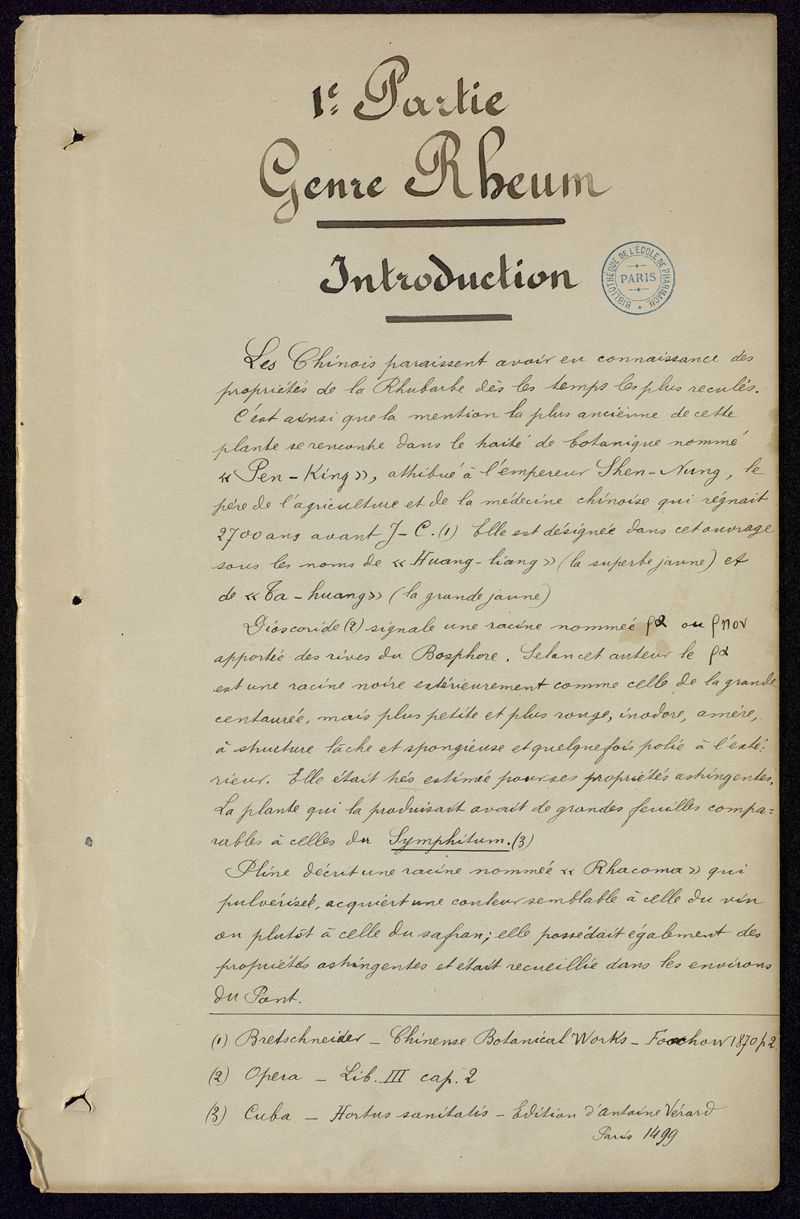 1e Partie
Genre Rheum
Introduction
BIBLIOTHÈQUE DE L'ECOLE DE PHARMACIE
PARIS
Les Chinois paraissent avoir eu connaissance des
propriétés de la Rhubarbe dès les temps les plus reculés.
C'est ainsi que la mention la plus ancienne de cette
plante se rencontre dans le traité de botanique nommé
« Pen-King », attribué à l'empereur Shen-Nung, le
père de l'agriculture et de la médecine chinoise qui régnait
2700 ans avant J-C. (1) Elle est désignée dans cet ouvrage
sous les noms de « Huang-liang » (la superbe jaune) et
de « Ta-huang » (la grande jaune)
Dioscoride (2) signale une racine nommée ρα ou ρηον
apportée des rives du Bosphore. Selon cet auteur le ρα
est une racine noire extérieurement comme celle de la grande
centaurée, mais plus petite et plus rouge, inodore, amère,
à structure lâche et spongieuse et quelquefois polie à l'exté-
rieur. Elle était très estimée pour ses propriétés astringentes.
La plante qui la produisait avait de grandes feuilles compa-
rables à celles du Symphitum. (3)
Pline décrit une racine nommée « Rhacoma » qui
pulvérisée, acquiert une couleur semblable à celle du vin
ou plutôt à celle du safran; elle possédait également des
propriétés astringentes et était recueillie dans les environs
du Pont.
(1) Bretschneider - Chinense Botanical Works - Foochow 1870 p 2
(2) Opera - Lib. III cap. 2
(3) Cuba - Hortus sanitatis - Edition d'Antoine Vérard
Paris 1499